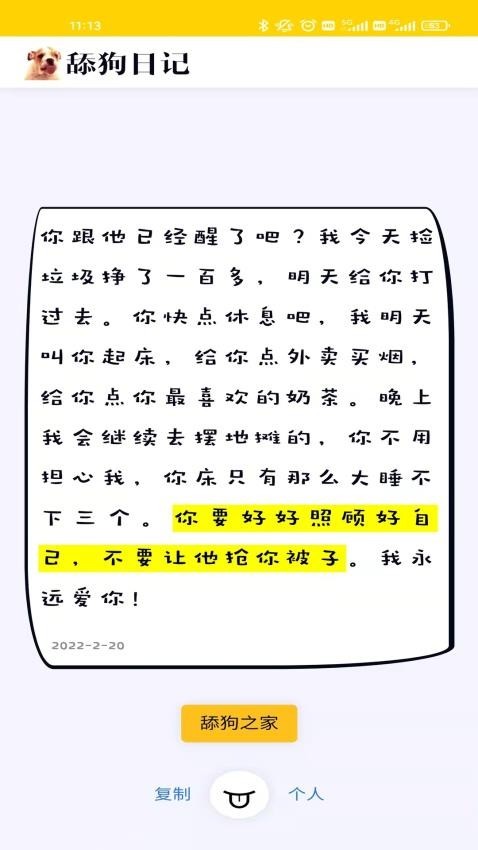 11:13
HD 5G HD 4G 63
舔狗日记
你跟他已经醒了吧？我今天捡
垃圾挣了一百多，明天给你打
过去。你快点休息吧，我明天
叫你起床，给你点外卖买烟，
给你点你最喜欢的奶茶。晚上
我会继续去摆地摊的，你不用
担心我，你床只有那么大睡不
下三个。你要好好照顾好自
己，不要让他抢你被子。我永
远爱你！
2022-2-20
舔狗之家
复制 个人